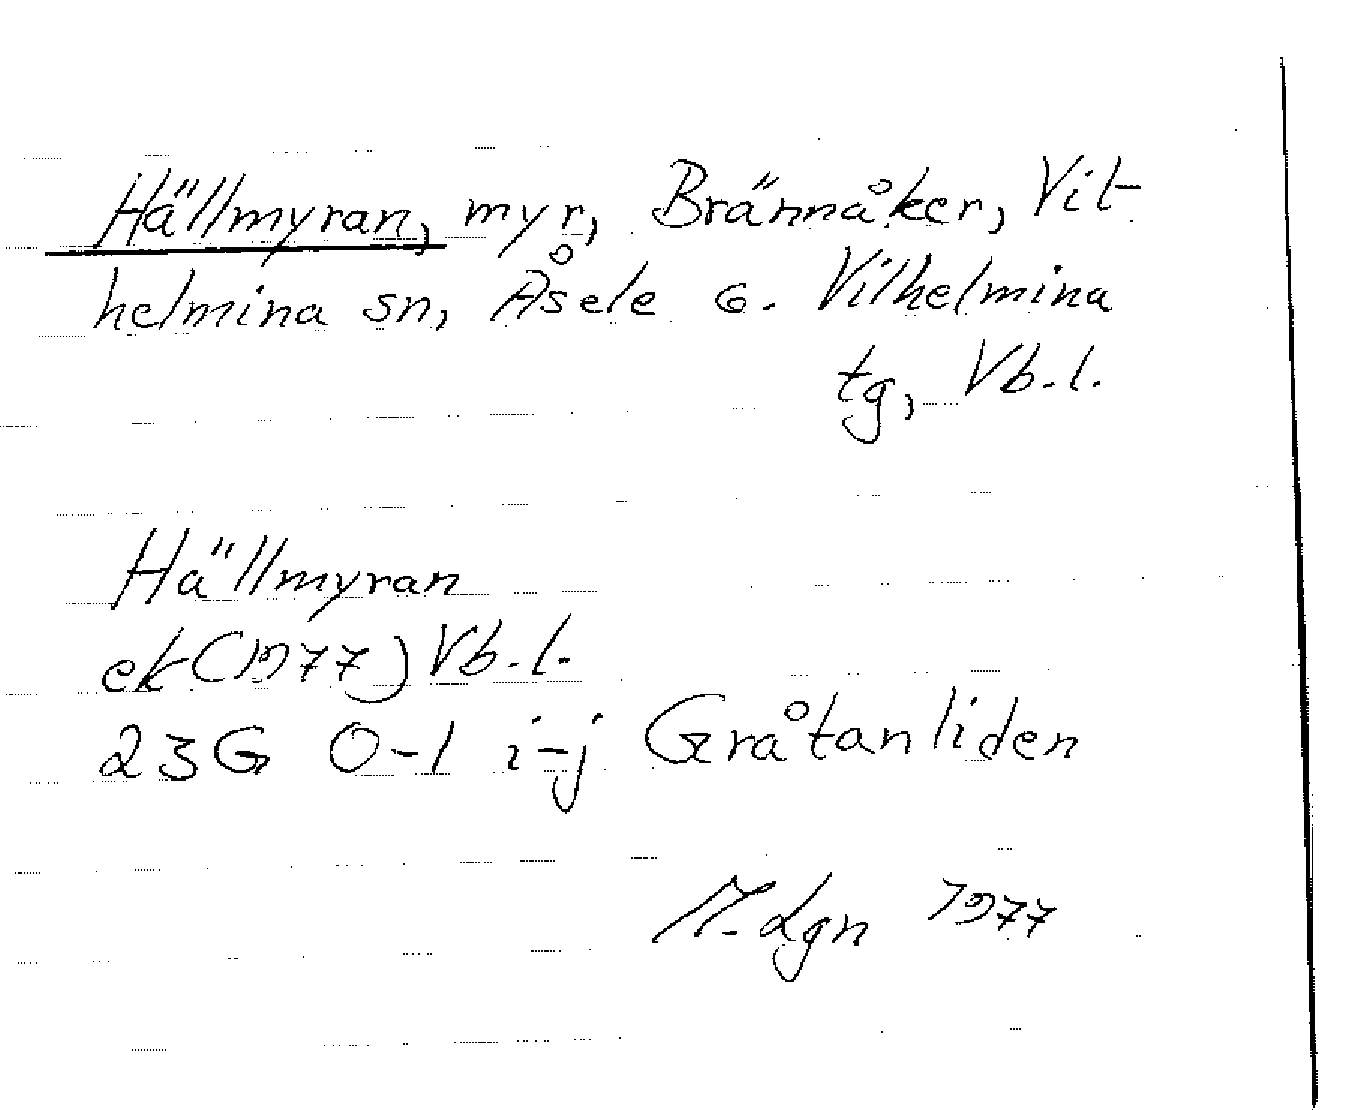 Hällmyran, myr, Brännåker, Vil-
helmina sn, Åsele G. Vilhelmina
tg, Vb.l.
Hällmyran
ek (1977) Vb.l.
23G 0-1 i-j Gråtanliden
M. Lgn 1977